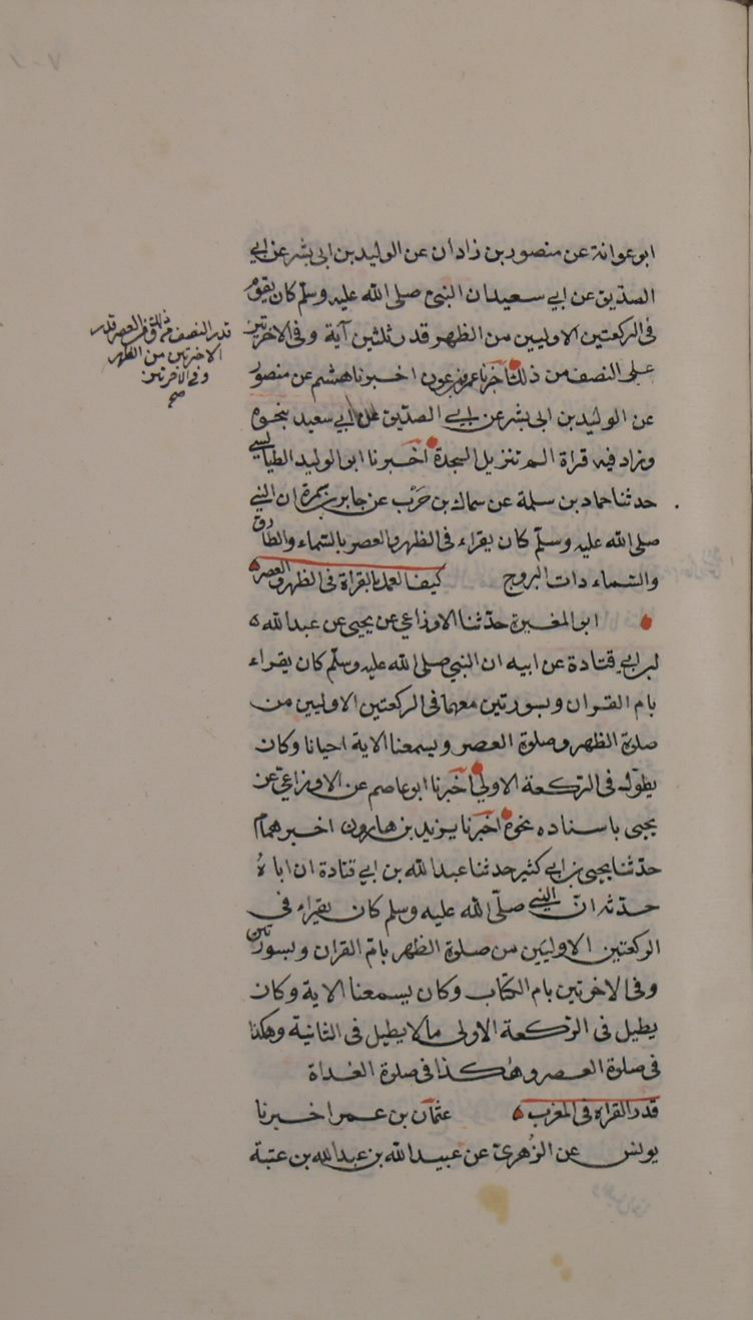 ابو عوانة عن منصور بن زادان عن الوليد بن ابى بشر عن ابي
الصدّيق عن ابي سعيد ان النبى صلى الله عليه وسلم كان يقوم
فى الركعتين الاوليين من الظهر قدر ثلثين آية وفى الاخرتين
على النصف من ذلك اخرنا عمرو بن عون اخبرنا هشم عن منصور
عن الوليد بن ابى بشر عن ابي الصدّيق عن ابي سعيد بنحوه
وزاد فيه قراة الم تنزيل السجدة اخبرنا ابو الوليد الطيالسي
حدثنا حماد بن سلمة عن سماك بن حَرْب عن جابر بن سمرة ان النبي
صلى الله عليه وسلم كان يقراء فى الظهر والعصر بالسماء والطارق
والسماء ذات البروج كيف العمل بالقراة فى الظهر والعصر
ابو المغيرة حدثنا الاوزاعي عن يحيى عن عبد الله
بن ابي قتادة عن ابيه ان النبي صلى الله عليه وسلم كان يقراء
بام القران وبسورتين معهما فى الركعتين الاوليين من
صلوة الظهر وصلوة العصر ويسمعنا الاية احيانا وكان
يطول فى الركعة الاولى اخبرنا ابو عاصم عن الاوزاعيّ عن
يحيى باسناده نحوه اخبرنا يزيد بن هارون اخبر همام
حدّثنا يحيى بن ابي كثير حدثنا عبد الله بن ابي قتادة ان اباهُ
حدّثه انّ النبي صلّى الله عليه وسلم كان يقراء فى
الركعتين الاوليين من صلوة الظهر بامّ القران وبسورتين
وفى الاخرتين بام الكتاب وكان يسمعنا الاية وكان
يطيل فى الركعة الاولى مالا يطيل فى الثانية وهكذا
فى صلوة العصر وهكذا فى صلوة الغداة
قدر القراة فى المغرب عثمان بن عمر اخبرنا
يونس عن الزُهريّ عن عبيد الله بن عبد الله بن عتبة
قدر النصف من ذلك وفى العصر قدر
الاخرتين من الظهر
وفى الاخرتين
صح